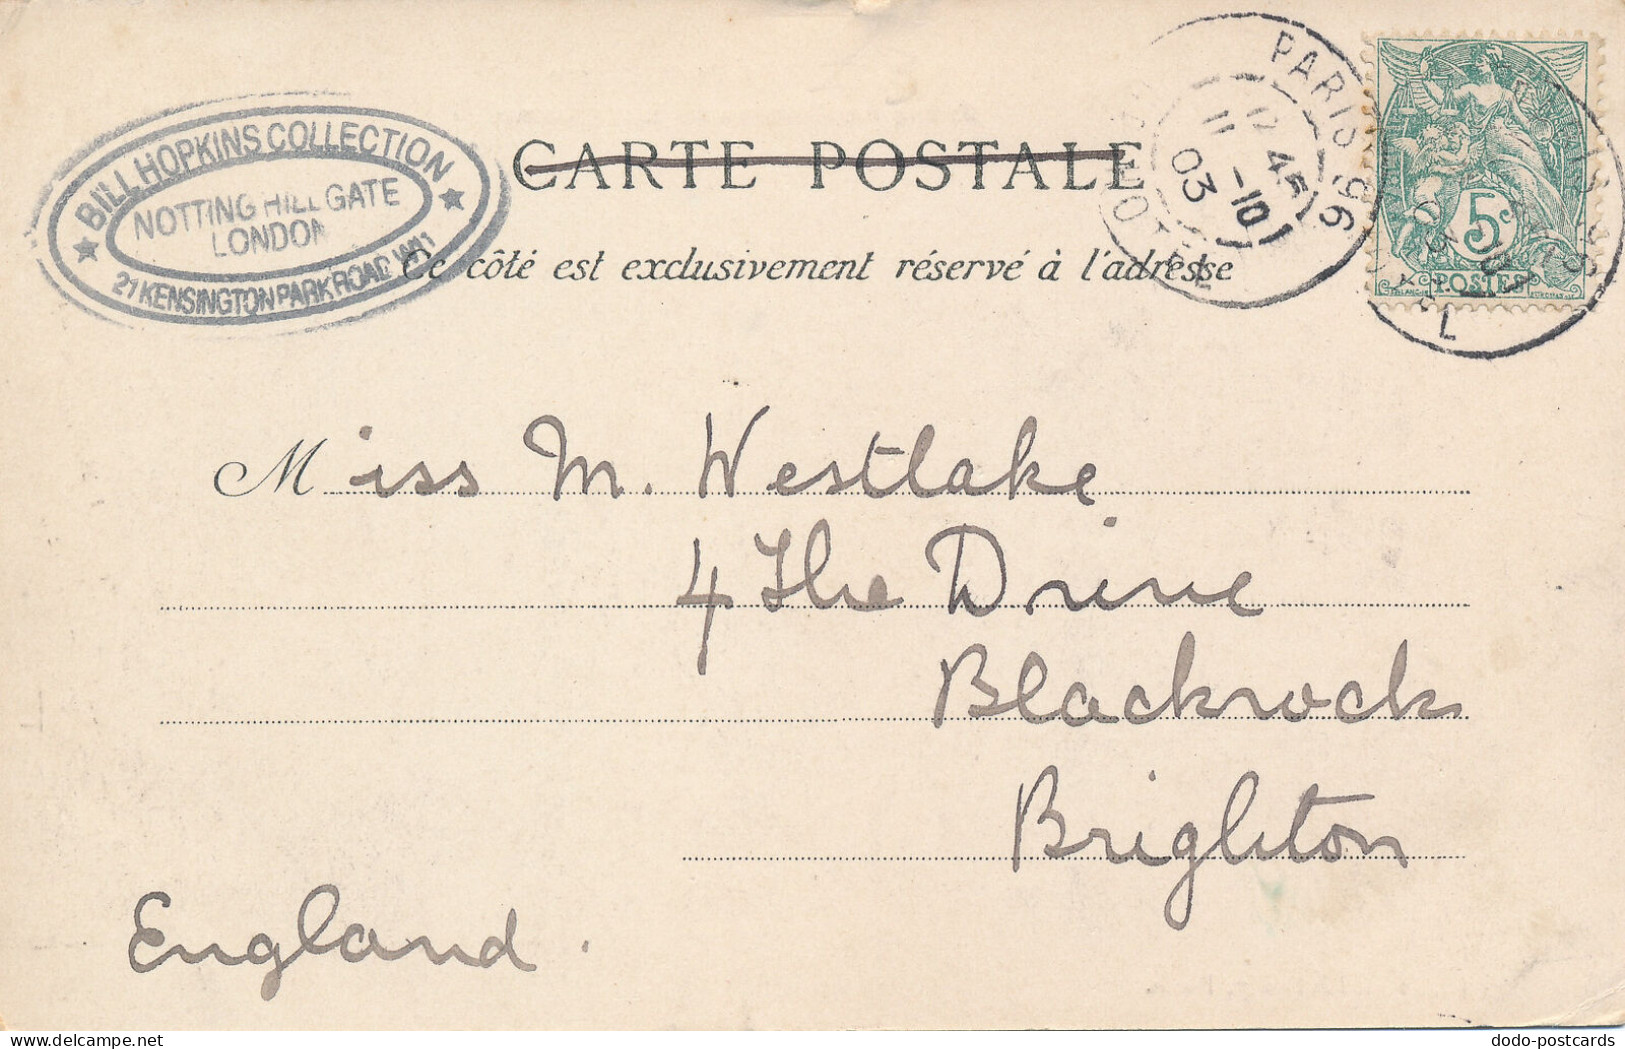 BILL HOPKINS COLLECTION
NOTTING HILL GATE
LONDON
21 KENSINGTON PARK ROAD W11
CARTE POSTALE
Ce côté est exclusivement réservé à l'adresse
PARIS 96
12 45
11 -10
03
5c
POSTES
Miss M. Westlake
4 The Drive
Blackrock
Brighton
England.
dodo-postcards